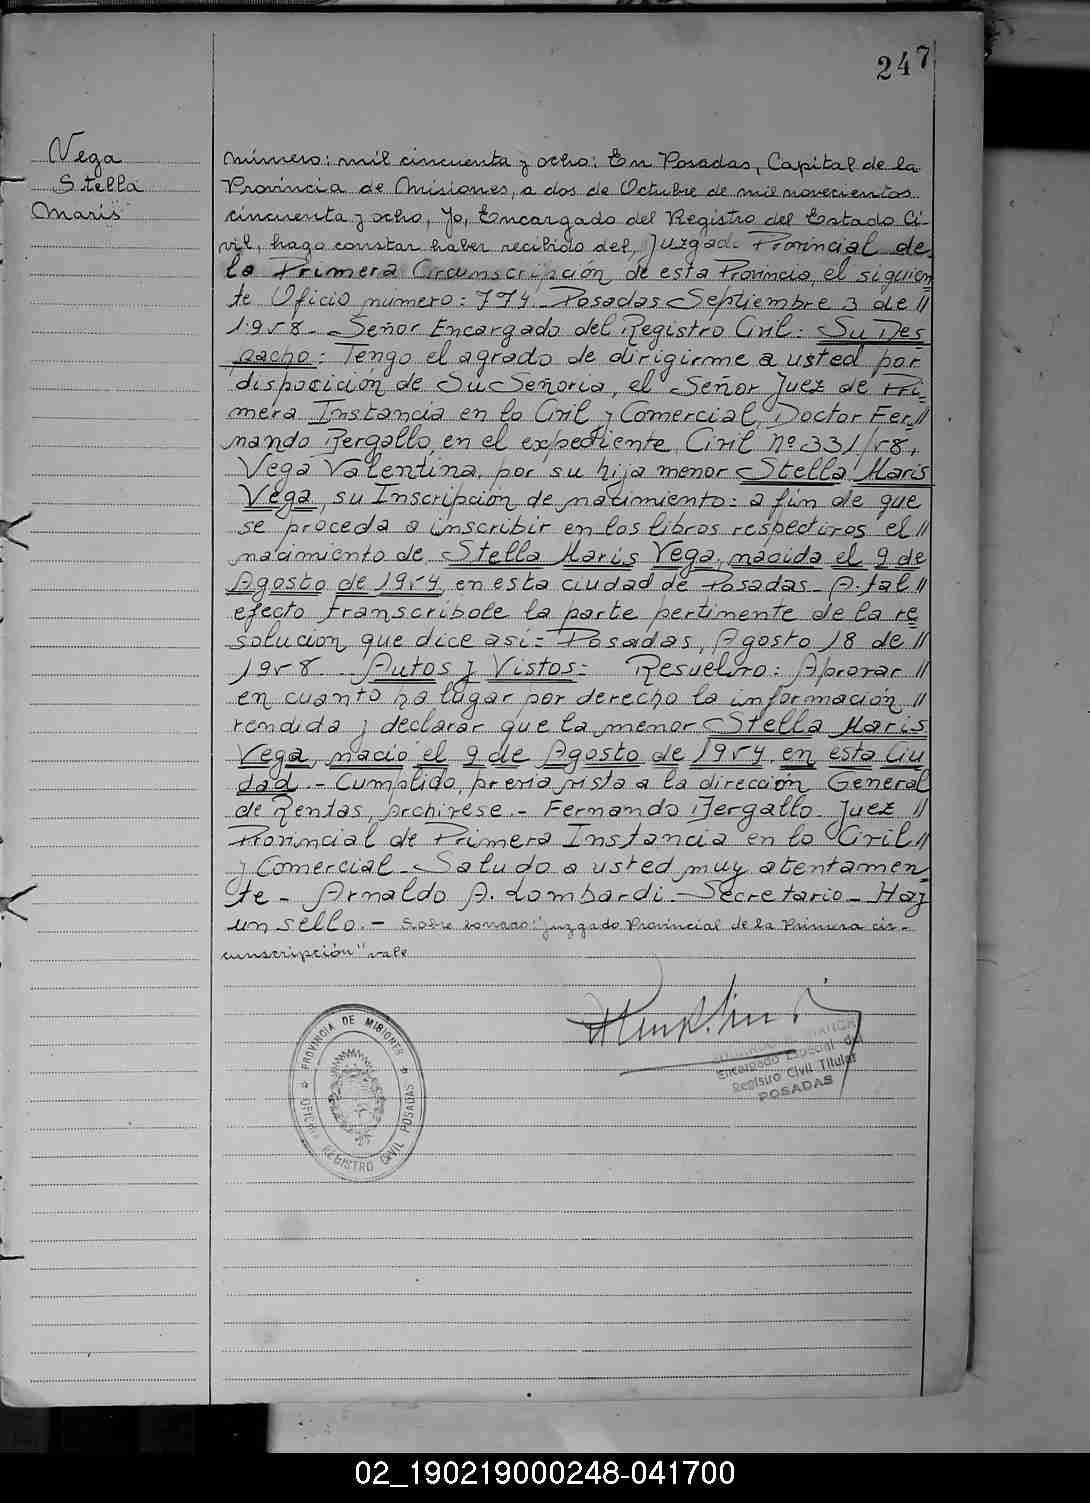 247
Vega
Stella
Maris
Número: mil cincuenta y ocho: En Posadas, Capital de la
Provincia de Misiones, a dos de Octubre de mil novecientos
cincuenta y ocho, Yo, Encargado del Registro del Estado Ci-
vil, hago constar haber recibido del, Juzgado Provincial de
la Primera Circunscripción de esta Provincia, el siguien
te Oficio número: 774. Posadas Septiembre 3 de //
1958.- Señor Encargado del Registro Civil: Su Des
pacho: Tengo el agrado de dirigirme a usted por
disposición de Su Señoria, el Señor Juez de Pri-
mera Instancia en lo Civil y Comercial, Doctor Fer-//
nando Bergallo, en el expediente Civil Nº 331/58,
Vega Valentina, por su hija menor Stella Maris
Vega, su Inscripción de nacimiento: a fin de que
se proceda a inscribir en los libros respectivos el //
nacimiento de Stella Maris Vega, nacida el 9 de
Agosto de 1954, en esta ciudad de Posadas. A tal //
efecto transcribole la parte pertinente de la re
solucion que dice asi= Posadas, Agosto 18 de //
1958.- Autos y Vistos= Resuelvo: Aprovar //
en cuanto ha lugar por derecho la información //
rendida y declarar que la menor Stella Maris
Vega, nació el 9 de Agosto de 1954, en esta Ciu
dad.- Cumplido, previa vista a la dirección General
de Rentas, archivese.- Fernando Bergallo. Juez //
Provincial de Primera Instancia en lo Civil //
y Comercial. Saludo a usted muy atentamen
te - Arnaldo A. Lombardi - Secretario - Hay
un sello.- Sobre borrado: "Juzgado Provincial de la Primera cir-
cunscripción" vale
PROVINCIA DE MISIONES
OFICINA REGISTRO CIVIL POSADAS
Encargado Especial del
Registro Civil Titular
POSADAS
02_190219000248-041700